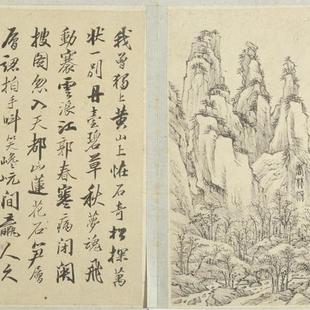 我曾獨上黃山上怪石奇松探萬
狀一別丹臺碧草秋夢魂飛
動褰雲浪江郭春寒病閉關
披圖忽入天都山蓮花石笋層
層認拍手叫笑巉岏間羸人久